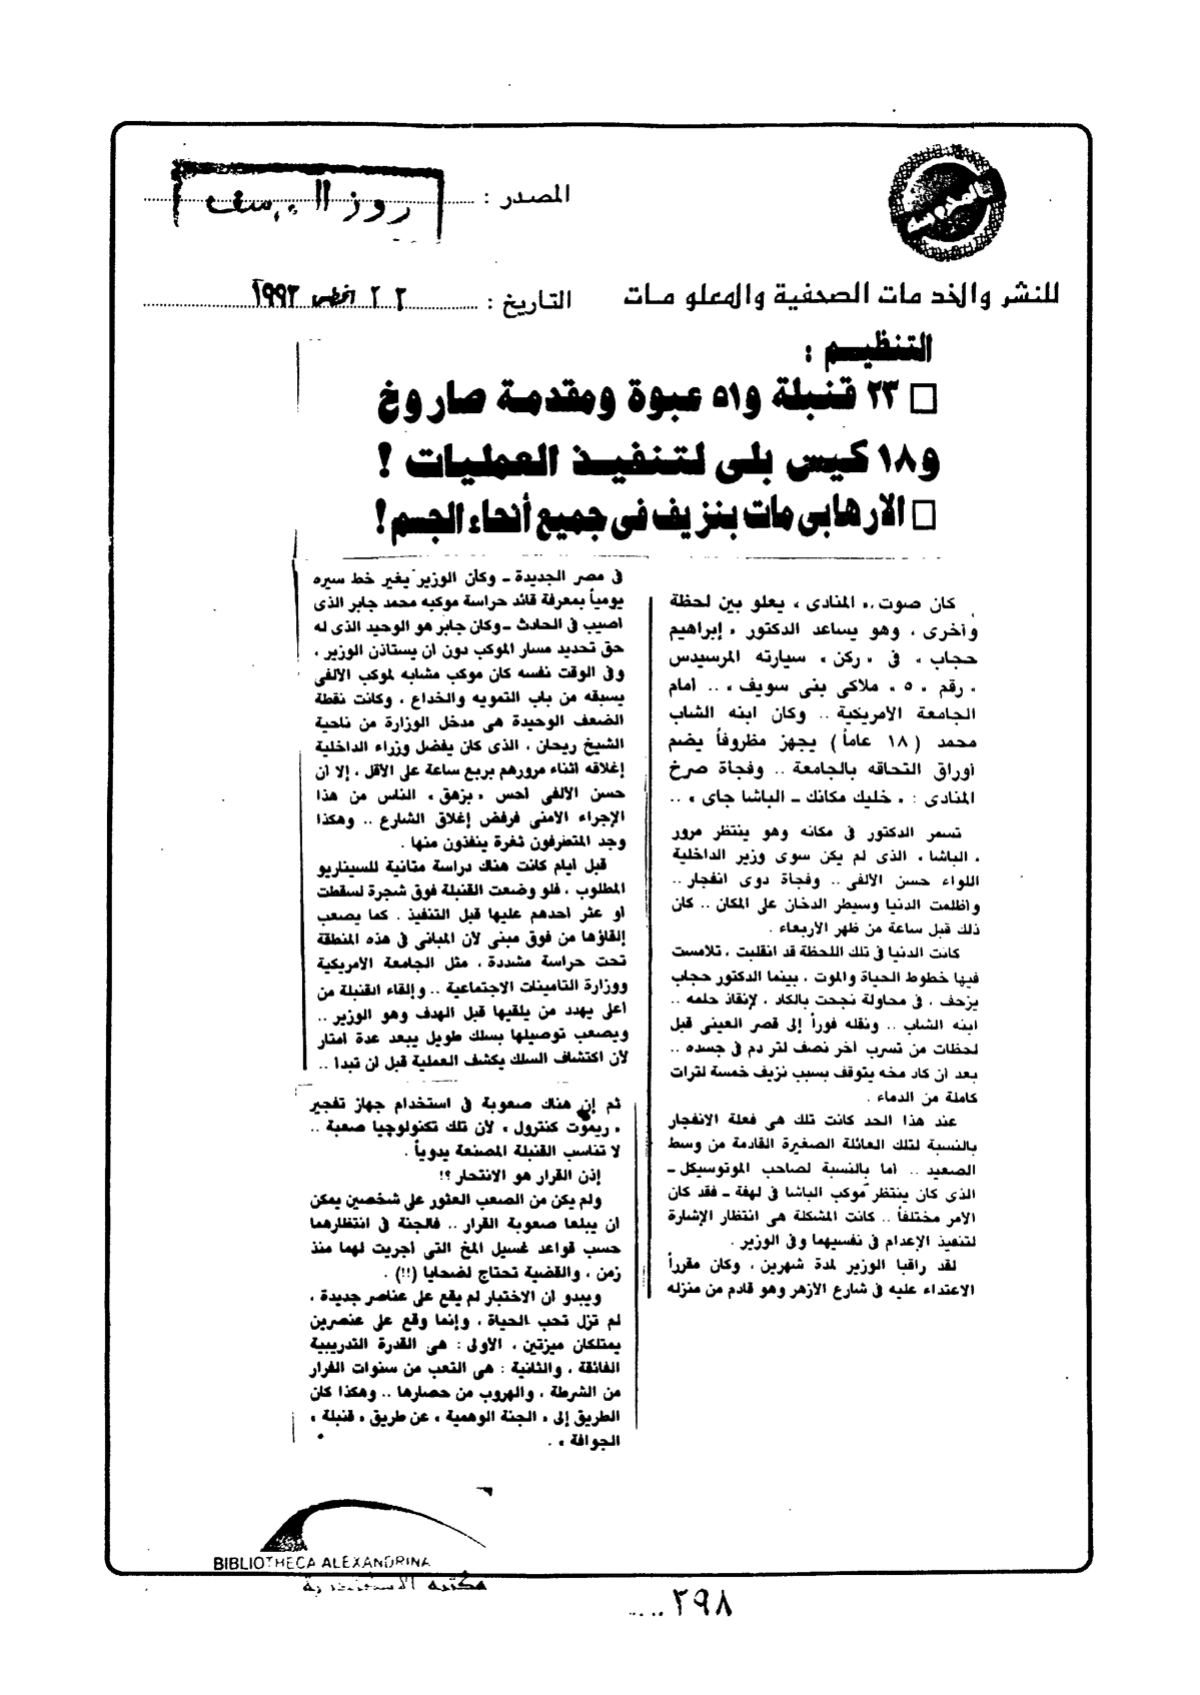 المصدر :
روز اليوسف
للنشر والخدمات الصحفية والمعلومات
التاريخ :
٢٢ اغسطس ١٩٩٣
التنظيم :
٢٣ قنبلة و٥١ عبوة ومقدمة صاروخ
و١٨ كيس بلى لتنفيذ العمليات !
الارهابى مات بنزيف فى جميع أنحاء الجسم !
كان صوت « المنادى » يعلو بين لحظة
وأخرى ، وهو يساعد الدكتور « إبراهيم
حجاب » فى « ركن » سيارته المرسيدس
« رقم « ٥ » ملاكى بنى سويف » .. أمام
الجامعة الأمريكية .. وكان ابنه الشاب
محمد ( ١٨ عاماً ) يجهز مظروفاً يضم
أوراق التحاقه بالجامعة .. وفجأة صرخ
المنادى : « خليك مكانك ــ الباشا جاى » ..
تسمر الدكتور فى مكانه وهو ينتظر مرور
« الباشا » الذى لم يكن سوى وزير الداخلية
اللواء حسن الألفى .. وفجأة دوى انفجار ..
وأظلمت الدنيا وسيطر الدخان على المكان .. كان
ذلك قبل ساعة من ظهر الأربعاء .
كانت الدنيا فى تلك اللحظة قد انقلبت ، تلامست
فيها خطوط الحياة والموت ، بينما الدكتور حجاب
يزحف ، فى محاولة نجحت بالكاد ، لإنقاذ حلمه ..
ابنه الشاب .. ونقله فوراً إلى قصر العينى قبل
لحظات من تسرب آخر نصف لتر دم فى جسده ..
بعد أن كاد مخه يتوقف بسبب نزيف خمسة لترات
كاملة من الدماء .
عند هذا الحد كانت تلك هى فعلة الانفجار
بالنسبة لتلك العائلة الصغيرة القادمة من وسط
الصعيد .. أما بالنسبة لصاحب الموتوسيكل ــ
الذى كان ينتظر موكب الباشا فى لهفة ــ فقد كان
الأمر مختلفاً .. كانت المشكلة هى انتظار الإشارة
لتنفيذ الإعدام فى نفسيهما وفى الوزير .
لقد راقبا الوزير لمدة شهرين ، وكان مقرراً
الاعتداء عليه فى شارع الأزهر وهو قادم من منزله
فى مصر الجديدة ــ وكان الوزير يغير خط سيره
يومياً بمعرفة قائد حراسة موكبه محمد جابر الذى
أصيب فى الحادث ــ وكان جابر هو الوحيد الذى له
حق تحديد مسار الموكب دون أن يستأذن الوزير ،
وفى الوقت نفسه كان موكب مشابه لموكب الألفى
يسبقه من باب التمويه والخداع ، وكانت نقطة
الضعف الوحيدة هى مدخل الوزارة من ناحية
الشيخ ريحان ، الذى كان يفضل وزراء الداخلية
إغلاقه أثناء مرورهم بربع ساعة على الأقل ، إلا أن
حسن الألفى أحس « بزهق » الناس من هذا
الإجراء الأمنى فرفض إغلاق الشارع .. وهكذا
وجد المتطرفون ثغرة ينفذون منها .
قبل أيام كانت هناك دراسة متأنية للسيناريو
المطلوب ، فلو وضعت القنبلة فوق شجرة لسقطت
أو عثر أحدهم عليها قبل التنفيذ . كما يصعب
إلقاؤها من فوق مبنى لأن المبانى فى هذه المنطقة
تحت حراسة مشددة ، مثل الجامعة الأمريكية
ووزارة التأمينات الاجتماعية .. وإلقاء القنبلة من
أعلى يهدد من يلقيها قبل الهدف وهو الوزير ..
ويصعب توصيلها بسلك طويل يبعد عدة أمتار
لأن اكتشاف السلك يكشف العملية قبل أن تبدأ ..
ثم إن هناك صعوبة فى استخدام جهاز تفجير
« ريموت كنترول » لأن تلك تكنولوجيا صعبة ..
لا تناسب القنبلة المصنعة يدوياً .
إذن القرار هو الانتحار ؟!
ولم يكن من الصعب العثور على شخصين يمكن
أن يبلعا صعوبة القرار .. فالجنة فى انتظارهما
حسب قواعد غسيل المخ التى أجريت لهما منذ
زمن ، والقضية تحتاج لضحايا (!!) .
ويبدو أن الاختبار لم يقع على عناصر جديدة ،
لم تزل تحب الحياة ، وإنما وقع على عنصرين
يمتلكان ميزتين ، الأولى : هى القدرة التدريبية
الفائقة ، والثانية : هى التعب من سنوات الفرار
من الشرطة ، والهروب من حصارها .. وهكذا كان
الطريق إلى « الجنة الوهمية » عن طريق « قنبلة »
الجوافة » .
BIBLIOTHECA ALEXANDRINA
مكتبة الاسكندرية
٢٩٨